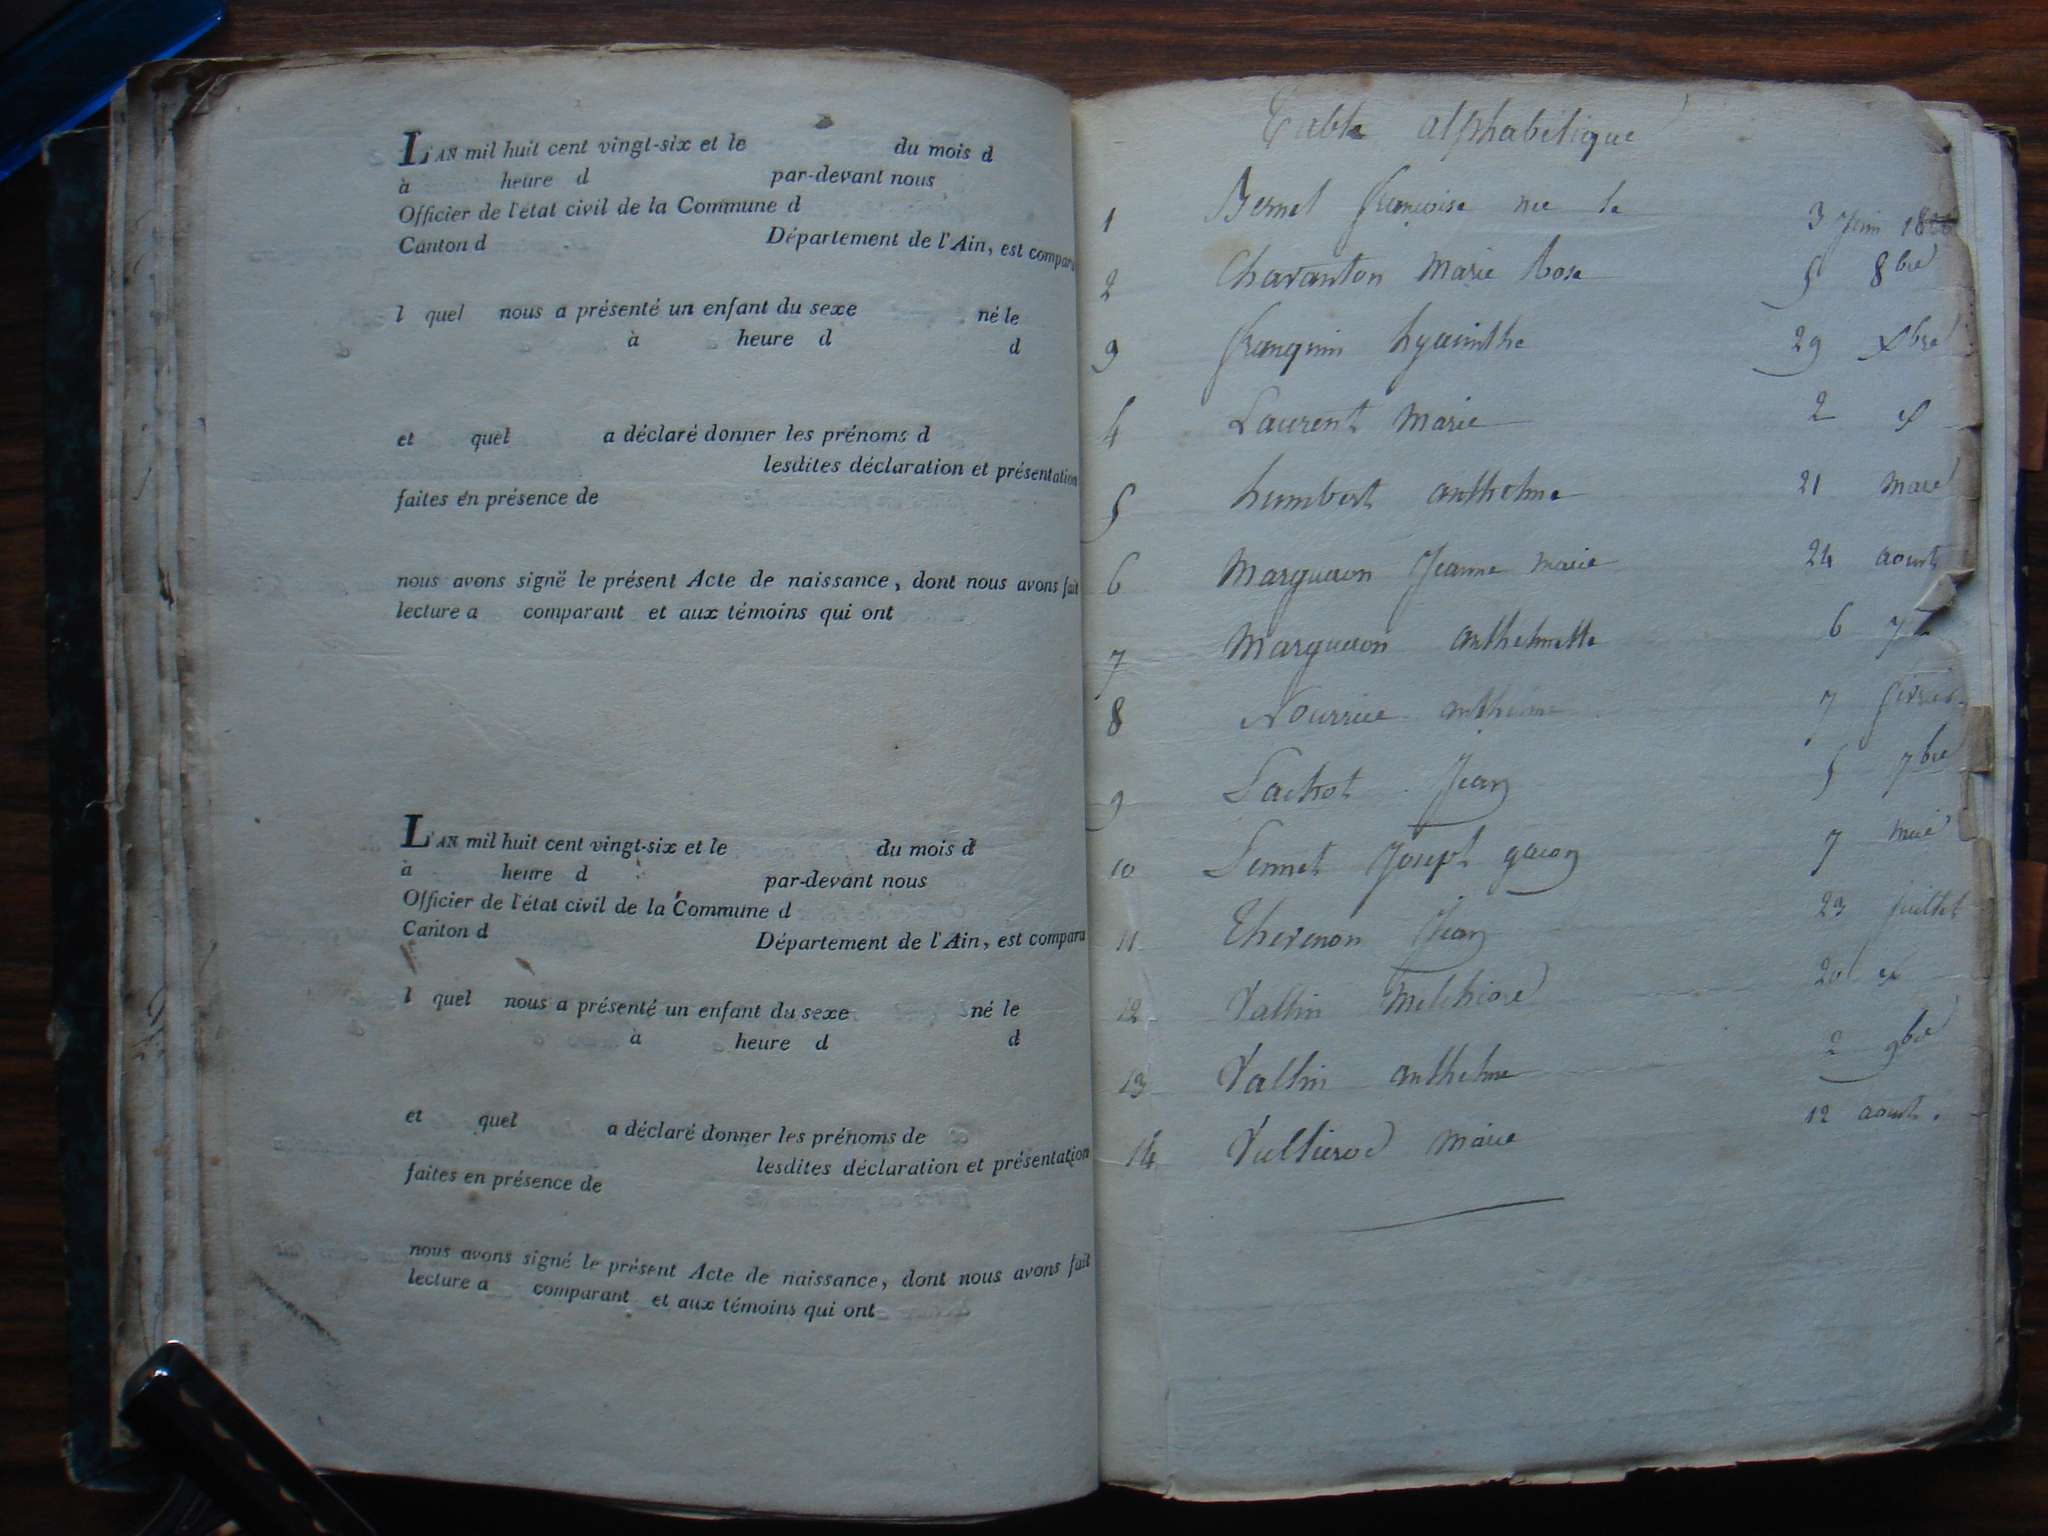 L'AN mil huit cent vingt-six et le du mois d
à heure d par-devant nous
Officier de l'état civil de la Commune d
Canton d Département de l'Ain, est comparu
l quel nous a présenté un enfant du sexe né le
à heure d d
et quel a déclaré donner les prénoms d
lesdites déclaration et présentation
faites en présence de
nous avons signé le présent Acte de naissance, dont nous avons fait
lecture a comparant et aux témoins qui ont
L'AN mil huit cent vingt-six et le du mois d
à heure d par-devant nous
Officier de l'état civil de la Commune d
Canton d Département de l'Ain, est comparu
l quel nous a présenté un enfant du sexe né le
à heure d d
et quel a déclaré donner les prénoms de
lesdites déclaration et présentation
faites en présence de
nous avons signé le présent Acte de naissance, dont nous avons fait
lecture a comparant et aux témoins qui ont
Table alphabétique
1 Bernet françoise née le 3 Juin
2 Chavanton Marie Rose 5 8bre
3 franquin hyacinthe 29 xbre
4 Laurent Marie 2 x
5 humbert anthelme 21 mars
6 Margueron Jeanne marie 24 aoust
7 Margueron anthelmette 6 7
8 Nourrice anthelme 7 février
9 Jean 5 7bre
10 Joseph 7 mai
11 Thevenon Jean 23 juillet
12 Vallin Melchiord 20
13 Vallin anthelme 2 9bre
14 Vullierod marie 12 aoust.